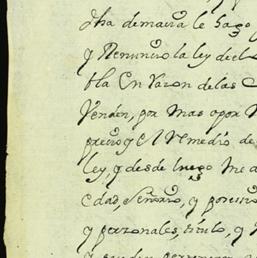 dha demacia le hago
y Renuncio la ley del
bla En razon de las
Venden, por mas o por
precio y El Remedio de
ley, y desde luego me de
edad, señorio, y posessio
y personales, titulo, y